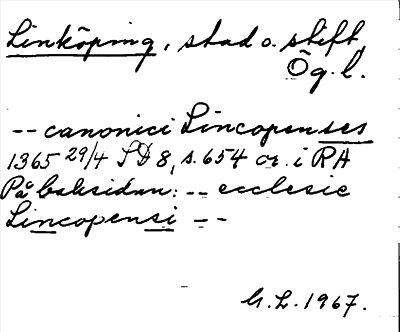 Linköping, stad o. stift,
Ög. l.
-- canonici Lincopenses
1365 29/4 SD 8, s. 654 or. i RA
På baksidan: -- ecclesie
Lincopensi --
G.L. 1967.